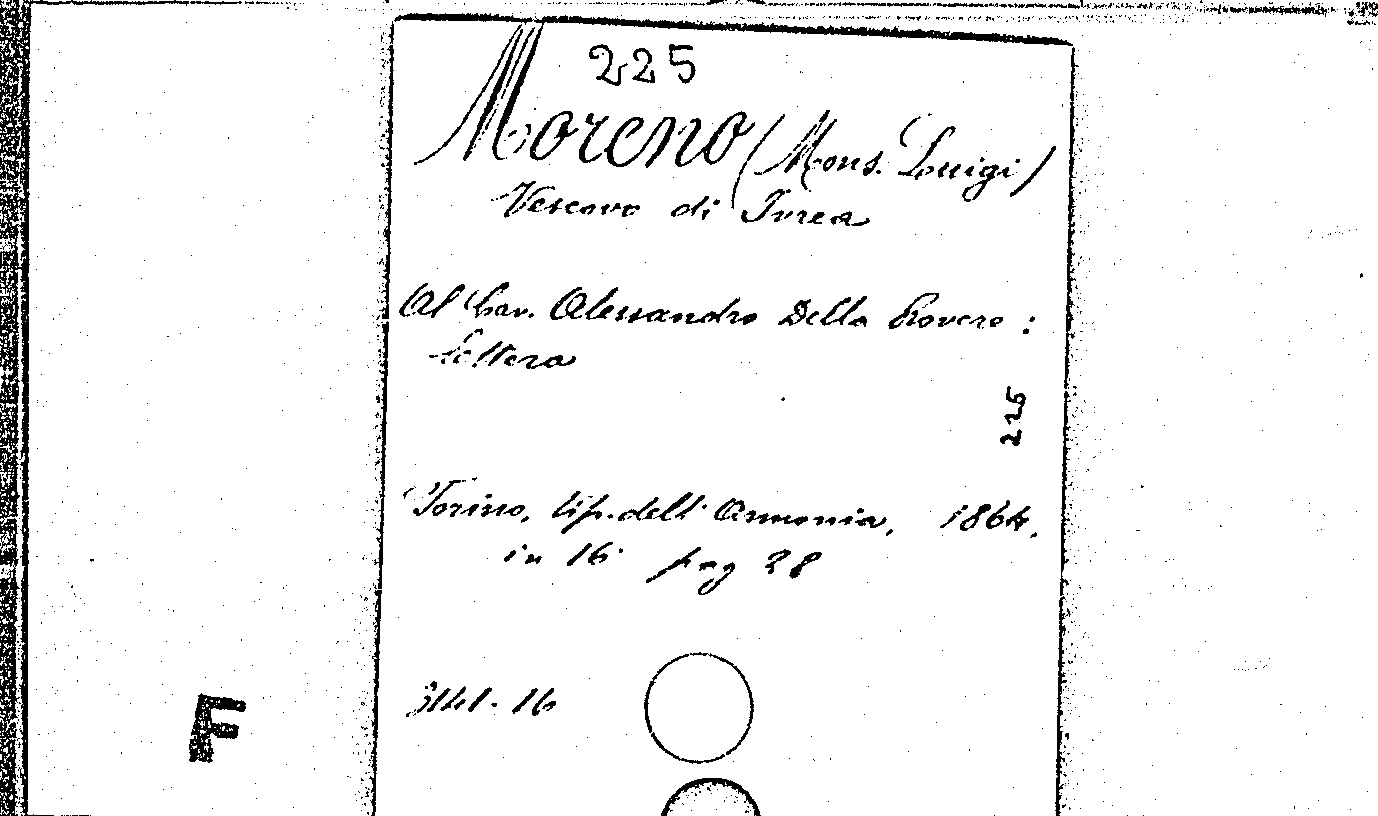 225
Moreno (Mons. Luigi)
Vescovo di Ivrea
Al Cav. Alessandro Della Rovere :
Lettera
225
Torino, tip. dell' Armonia, 1864.
in 16 pag 28
3141-16
F